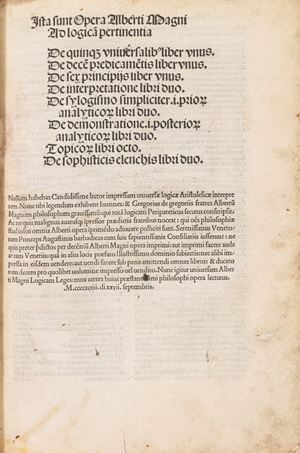 Ista sunt Opera Alberti Magni
Ad logicā pertinentia
De quinqꝫ vniversalibꝰ liber vnus.
De decē predicamētis liber vnus.
De sex principijs liber vnus.
De interpretatione libri duo.
De sylogismo simpliciter .i. prioꝝ
analyticoꝝ libri duo.
De demonstratione .i. posterioꝝ
analyticoꝝ libri duo.
Topicoꝝ libri octo.
De sophisticis elenchis libri duo.
Nullum habebas Candidissime lector impressum universe logicæ Aristotelicæ interpre
tem. Nunc tibi legendum exhibent Ioannes & Gregorius de gregoriis fratres Alberti
Magnum philosophum gravissimū: qui totā logicam Peripateticos secutus conscripsit.
Ac ne quis malignus aususqꝫ īpressor prædictis fratribus noceat: qui oēs philosophiæ
studiosos omnia Alberti opera īprimēdo adiuvare polliciti sunt. Serenissimus Veneto-
rum Princeps Augustinus barbadicus cum suis sapientissimis Consiliariis iusserunt: ne
quis præter prædictos per decēniū Alberti Magni opera imprimat: aut imprimi faceret aude
at tam Venetiis: quā in alio loco præfato Illustrissimo dominio subiecto: nec alibi im-
pressa in eisdem vendere aut vendi facere sub pena amittendi omnes libros: & ducato
rum decem pro quolibet volumine impresso vel vendito. Nunc igitur universam Alber
ti Magni Logicam Leges: mox cetera huius præstantissimi philosophi opera lecturus.
.M.cccc.xciiii. di .xxvii. septembris.